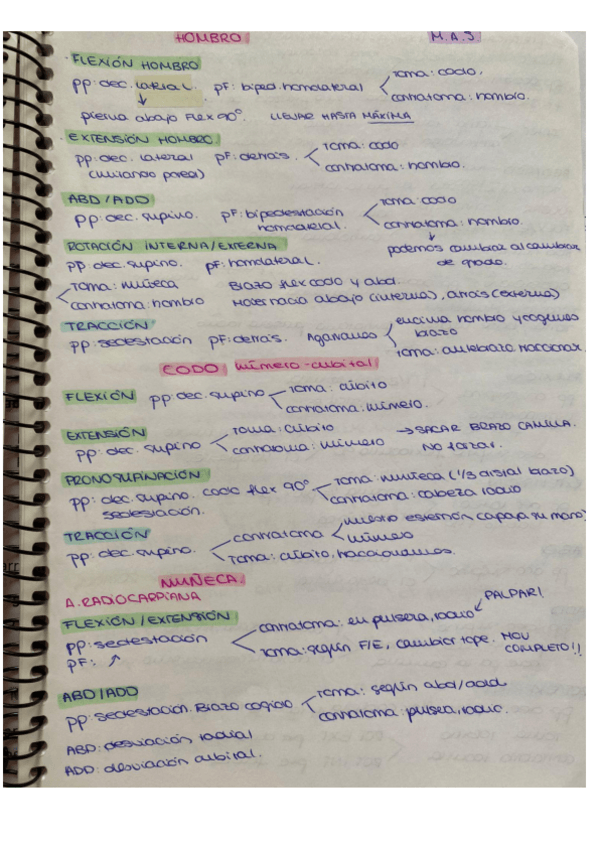 HOMBRO
M.A.S
· FLEXIÓN HOMBRO
pp: dec. lateral. pF: biped. homolateral
toma: codo.
contratoma: hombro.
↓
pierna abajo flex 90º. LLEVAR HASTA MÁXIMA
· EXTENSIÓN HOMBRO
pp: dec. lateral pF: detrás.
(mirando pared)
toma: codo
contratoma: hombro.
ABD/ADD
pp: dec. supino. pF: bipedestación
homolateral.
toma: codo
contratoma: hombro.
↓
podemos cambiar al cambiar
de grado.
ROTACIÓN INTERNA/EXTERNA
pp: dec. supino. pF: homolateral.
toma: muñeca
contratoma: hombro
Brazo flex codo y abd.
Hacer hacia abajo (interna), atrás (externa)
TRACCIÓN
pp: sedestación pF: detrás. Agarramos
encima hombro y cogemos
brazo
toma: antebrazo.
CODO húmero-cubital
FLEXIÓN pp: dec. supino
toma: cúbito
contratoma: húmero.
EXTENSIÓN
pp: dec. supino
toma: cúbito
contratoma: húmero
→ SACAR BRAZO CAMILLA.
NO forzar.
PRONOSUPINACIÓN
pp: dec. supino. codo flex 90º
sedestación.
toma: muñeca (1/3 distal brazo)
contratoma: cabeza radio
TRACCIÓN
pp: dec. supino.
contratoma
nuestro esternón, capaja su mano
húmero
toma: cúbito, traccionamos.
MUÑECA
A. RADIOCARPIANA
FLEXIÓN/EXTENSIÓN
pp: sedestación
pF: ↗
contratoma: en pulsera, radio
PALPAR!
toma: según F/E, cambia tope. MOV
COMPLETO!!
ABD/ADD
pp: sedestación. Brazo cogido
toma: según abd/add
contratoma: pulsera, radio.
ABD: desviación radial
ADD: desviación cubital.